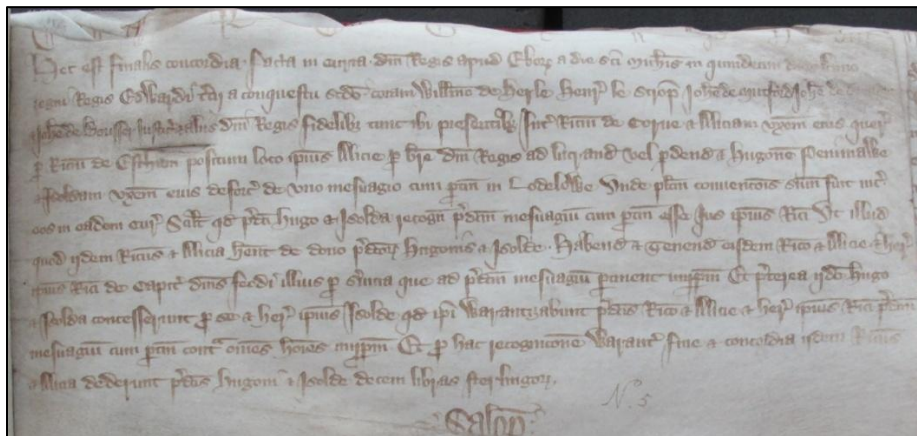 Hec est finalis concordia facta in curia dni Regis apud Ebor a die sci Michis in quindecim dies anno
regni Regis Edwardi tcii a conquestu scdo coram Willmo de Herle Henr le Scrop Johe de Mutford Johe de
Johe de Bousser Justic & aliis dni Regis fidelibz tunc ibi presentibz Int Ricm de Corve & Aliciam uxem eius quer
p Ricm de Estham positum loco ipius Alicie p bre dni Regis ad lucrand vel pdend & Hugonem Penimawe
& Isoldam uxem eius deforc de uno mesuagio cum ptin in Lodelowe Unde plitm convencois sum fuit int
eos in eadem cur Scilt qd pdci Hugo & Isolda recogn pdcm mesuagiu cum ptin esse Jus ipius Rici Ut illud
quod ijdem Ricus & Alicia hent de dono pdcor Hugonis & Isolde Habend & tenend eisdem Rico & Alicie & her
ipius Rici de Capit dnis feodi illius p svicia que ad pdcm mesuagiu ptinent imppm Et pterea ijdem Hugo
& Isolda concesserunt p se & her ipius Isolde qd ipi Warantizabunt pdcis Rico & Alicie & her ipius Rici pdcm
mesuagiu cum ptin cont omes hoies imppm Et p hac recognicone Warant fine & concordia ijdem Ricus
& Alicia dederunt pdcis Hugoni & Isolde decem libras sterlingor
No 5
Salop